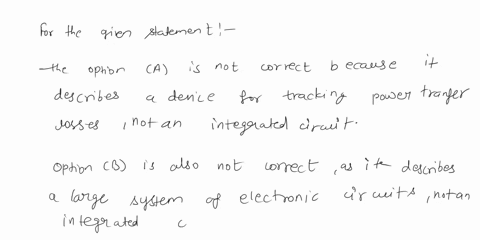 for the given statement:-
-the option (A) is not correct because it
describes a device for tracking power tranfer
losses, not an integrated circuit.
Option (B) is also not correct, as it describes
a large system of electronic circuits, not an
integrated c